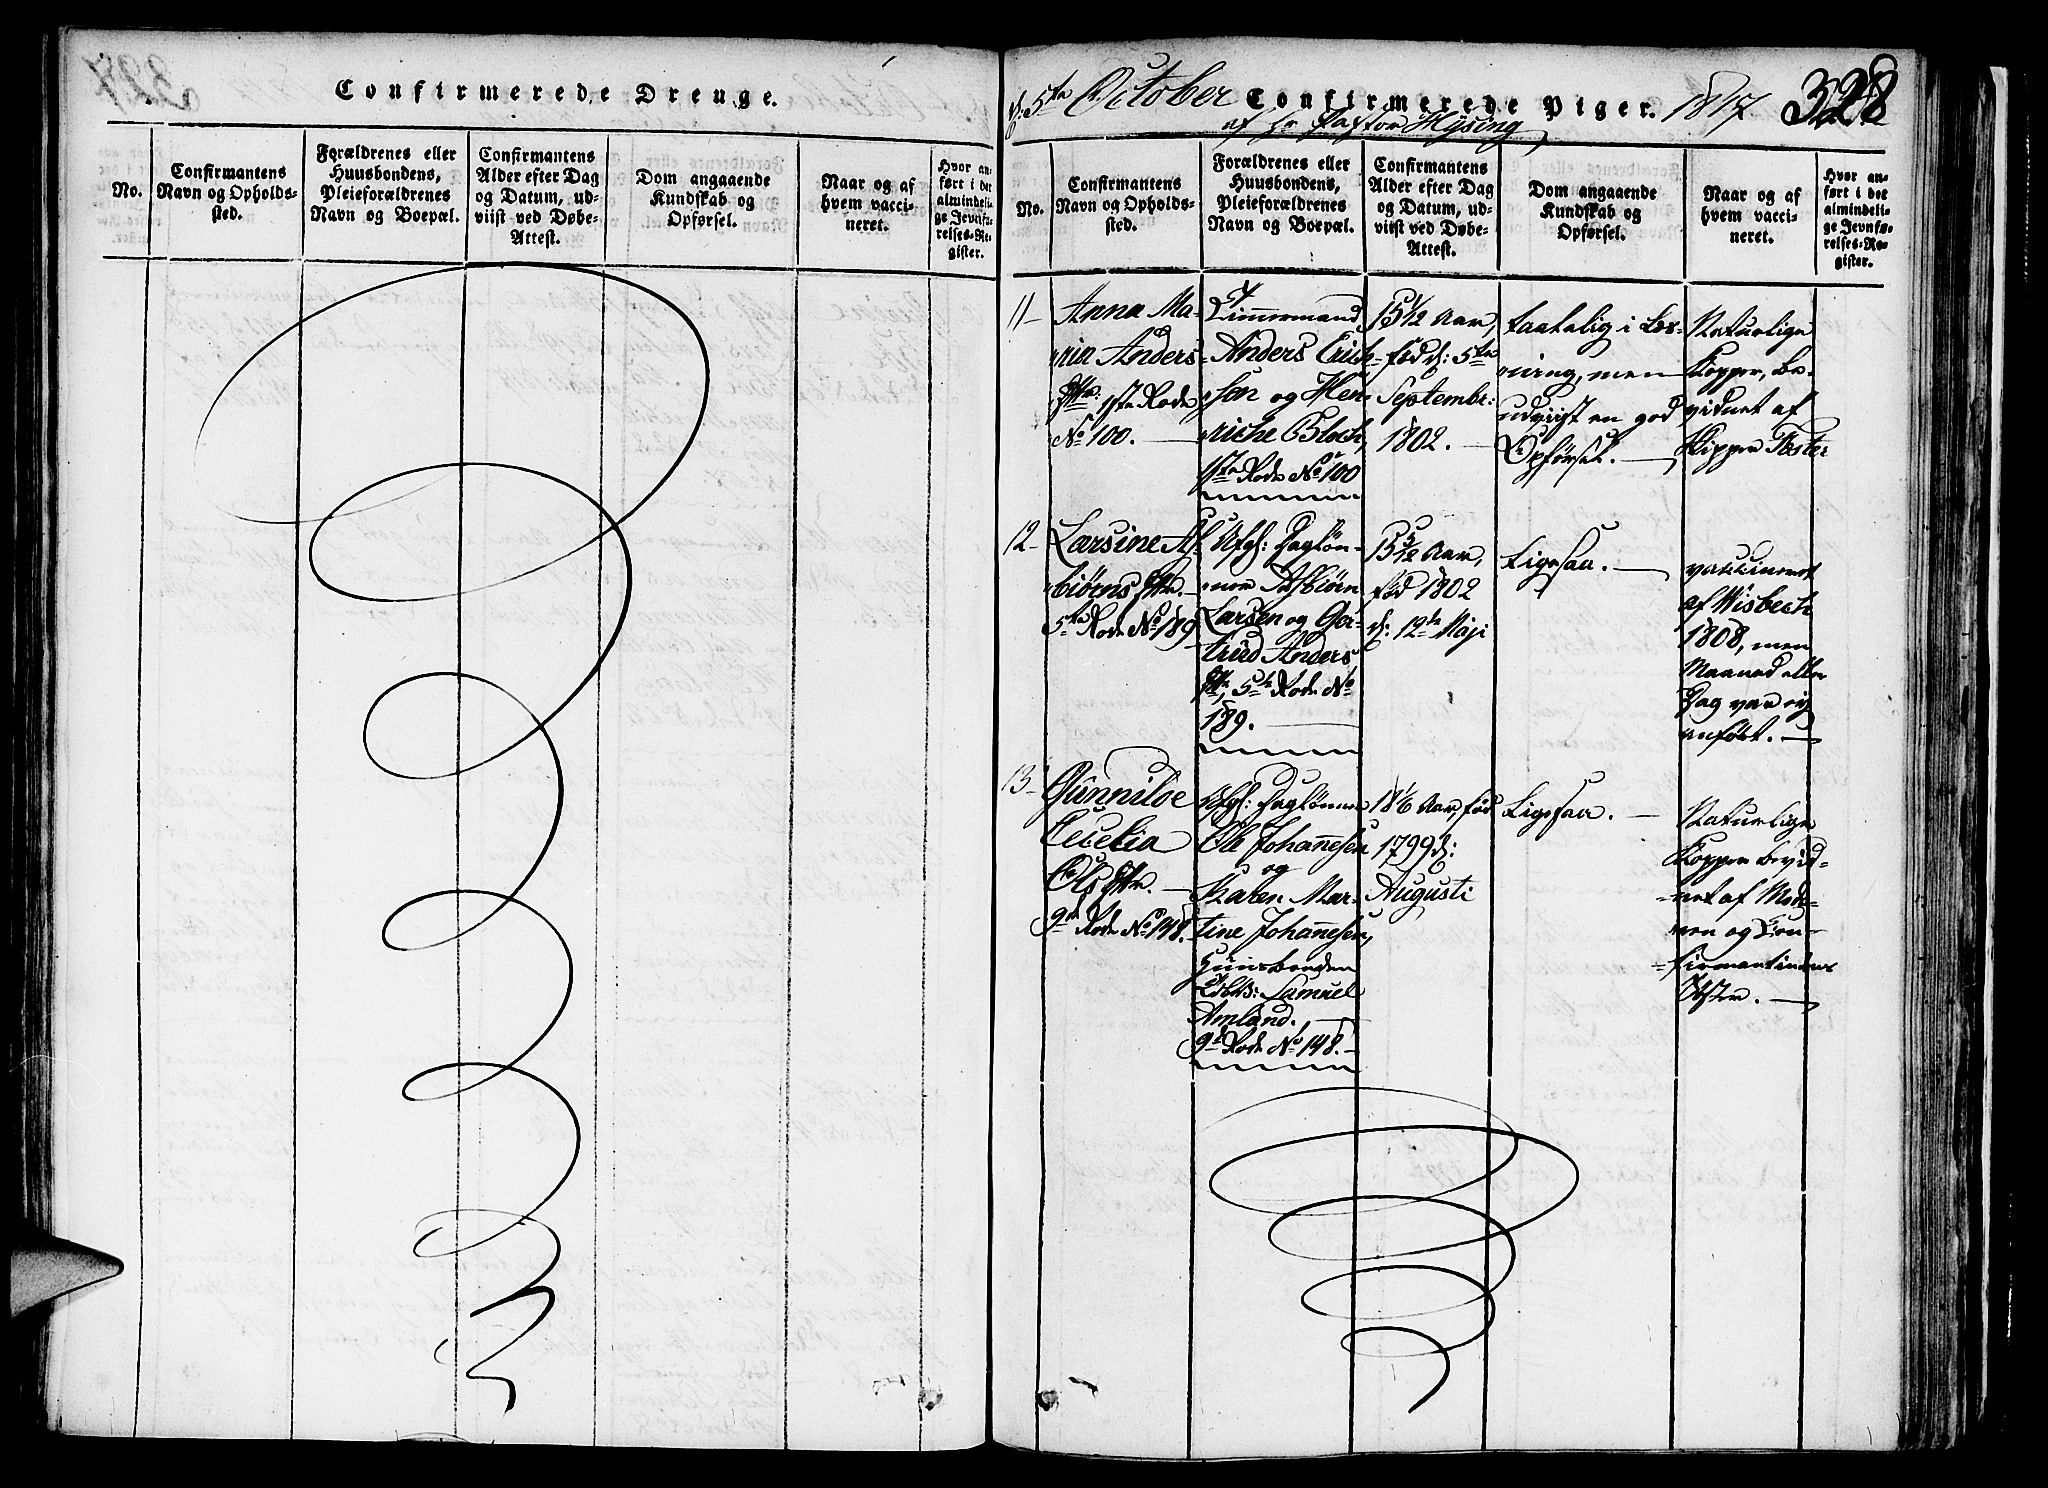 Confirmerede Drenge.
No.
Confirmantens
Navn og Opholds-
sted.
Forældrenes eller
Huusbondens,
Pleieforældrenes
Navn og Boepæl.
Confirmantens
Alder efter Dag
og Datum, ud-
viist ved Døbe-
Attest.
Dom angaaende
Kundskab og
Opførsel.
Naar og af
hvem vacci-
neret.
Hvor an-
ført i det
almindeli-
ge Jevnfø-
relses-Re-
gister.
d: 5te October Confirmerede Piger. 1817. 328
af Hr Pastor Hysing
No.
Confirmantens
Navn og Opholds-
sted.
Forældrenes eller
Huusbondens,
Pleieforældrenes
Navn og Boepæl.
Confirmantens
Alder efter Dag
og Datum, ud-
viist ved Døbe-
Attest.
Dom angaaende
Kundskab og
Opførsel.
Naar og af
hvem vacci-
neret.
Hvor an-
ført i det
almindeli-
ge Jevnfø-
relses-Re-
gister.
11-
Anna Ma-
ria Anders-
dttr: 1ste Rode
No 100.
Timmermand
Anders Erich-
sen og Hen-
riche Bloch,
1ste Rode No 100
15 1/12 Aar,
fød d: 5te
Septembr:
1802.
taalelig i Læs-
ning, men
udviist en god
Opførsel.
Naturlige
Kopper, be-
vidnet af
Klipper Toster
12-
Larsine As-
biørns dttr.
5te Rode No 189
Afg: Dagløn-
ner Asbiørn
Larsen og Ger-
trud Anders
dttr, 5te Rode No
189.
15 5/12 Aar,
fød 1802
d: 12te Maji
Ligesaa.
vaccineret
af Wisbech
1808, men
Maaned eller
Dag var ej
anført.
13-
Gunnilde
Cecelia
Ols dttr.
9de Rode No 148.
Afg: Daglønner
Ole Johannesen
og
Karen Mar-
tine Johannesen,
Huusbonden
Samuel
Amland.
9de Rode No 148.
18 1/6 Aar, fød
1799 d:
Augusti
Ligesaa.
Naturlige
Kopper bevid-
net af Mode-
ren og Con-
firmantindens